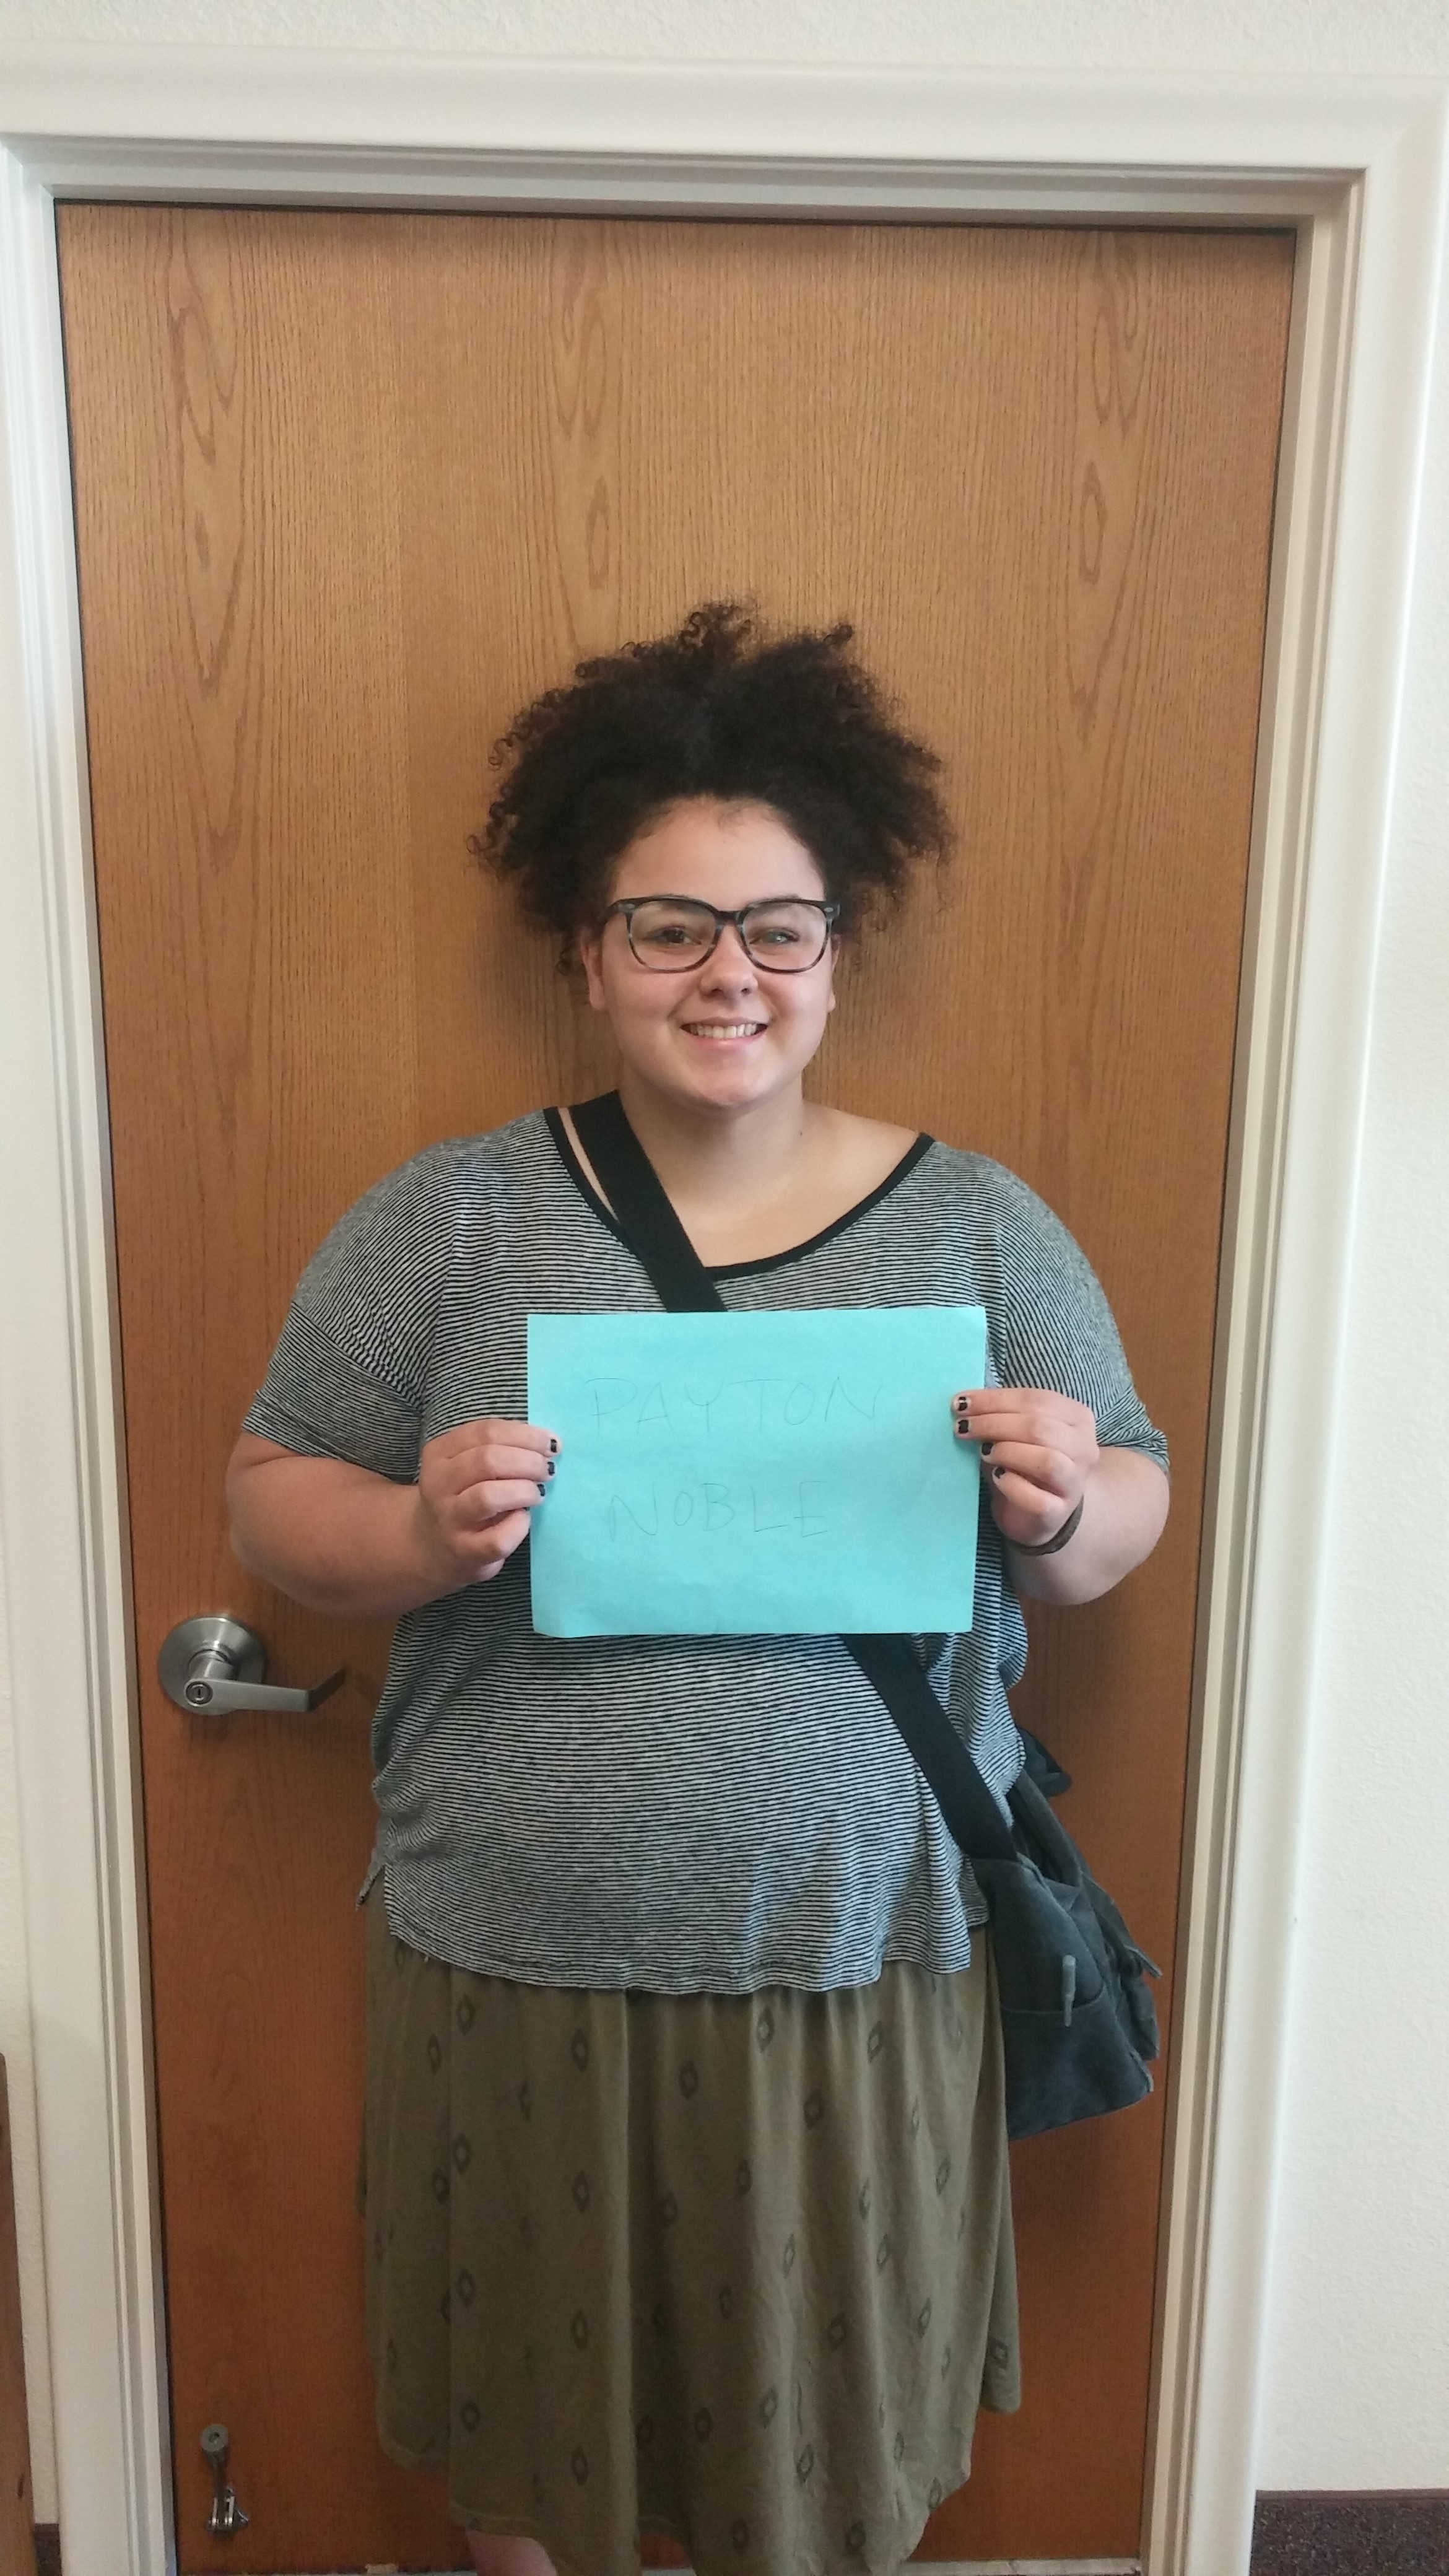 PAYTON
NOBLE